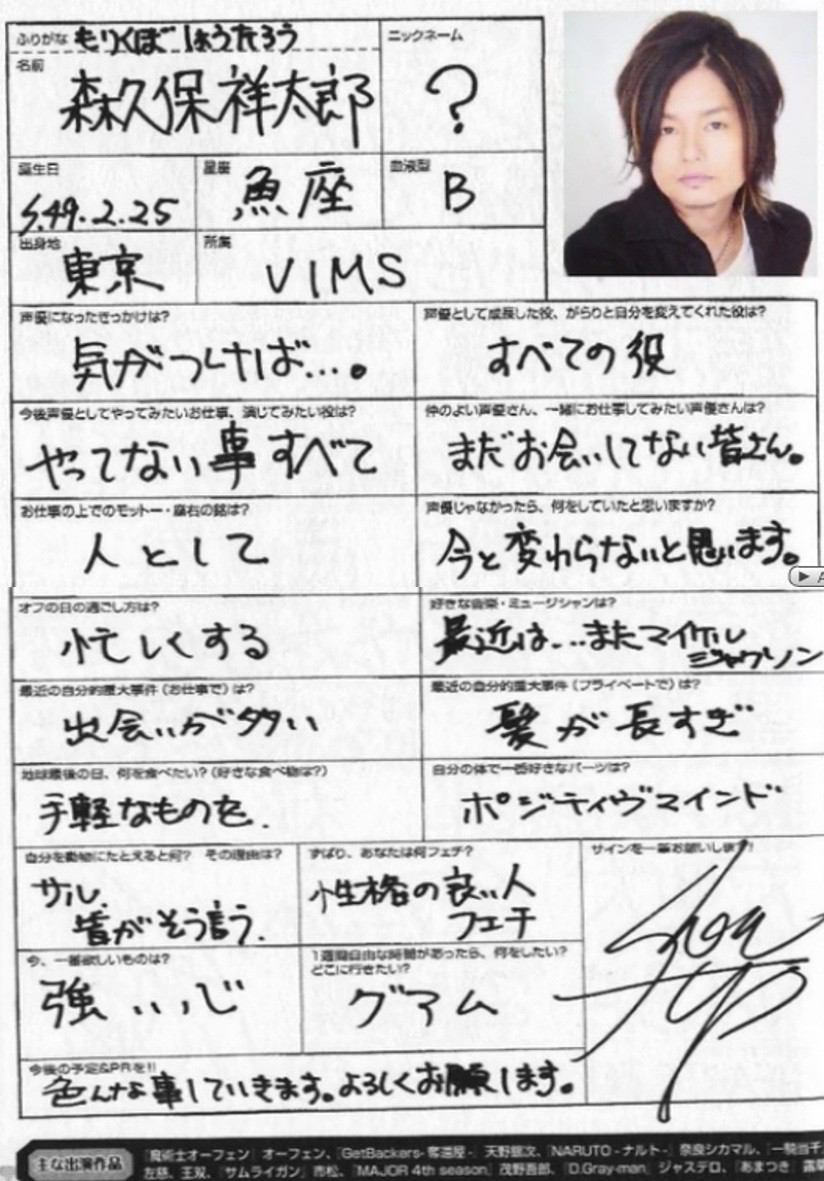 ふりがな もりくぼ しょうたろう
名前
森久保祥太郎
ニックネーム
?
誕生日
S.49.2.25
星座
魚座
血液型
B
出身地
東京
所属
VIMS
声優になったきっかけは?
気がつけば…。
声優として成長した役、がらりと自分を変えてくれた役は?
すべての役
今後声優としてやってみたいお仕事、演じてみたい役は?
やってない事すべて
仲のよい声優さん、一緒にお仕事してみたい声優さんは?
まだお会いしてない皆さん。
お仕事の上でのモットー・座右の銘は?
人として
声優じゃなかったら、何をしていたと思いますか?
今と変わらないと思います。
オフの日の過ごし方は?
忙しくする
好きな音楽・ミュージシャンは?
最近は...またマイケル
ジャクソン
最近の自分的重大事件(お仕事で)は?
出会いが多い
最近の自分的重大事件(プライベートで)は?
髪が長すぎ
地球最後の日、何を食べたい?(好きな食べ物は?)
手軽なものを.
自分の体で一番好きなパーツは?
ポジティヴマインド
自分を動物にたとえると何? その理由は?
サル.
皆がそう言う.
ずばり、あなたは何フェチ?
性格の良い人
フェチ
サインを一筆お願いします!
今、一番欲しいものは?
強いいじ
1週間自由な時間があったら、何をしたい?
どこに行きたい?
グアム
今後の予定&PRを!!
色んな事していきます。よろしくお願します。
主な出演作品
『魔術士オーフェン』オーフェン、『GetBackers-奪還屋-』天野銀次、『NARUTO-ナルト-』奈良シカマル、『一騎当千
左慈、王双、『サムライガン』市松、『MAJOR 4th season』茂野吾郎、『D.Gray-man』ジャスデロ、『あまつき』露草